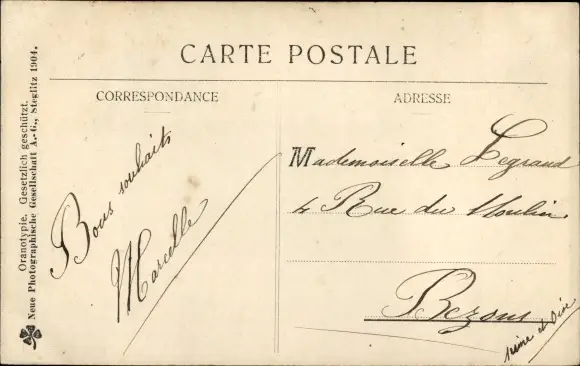 CARTE POSTALE
CORRESPONDANCE
ADRESSE
Bons souhaits
Marcelle
Mademoiselle Legrand
4 Rue du Moulin
Bezons
Seine et Oise
Oranotypie. Gesetzlich geschützt.
Neue Photographische Gesellschaft A.-G., Steglitz 1904.